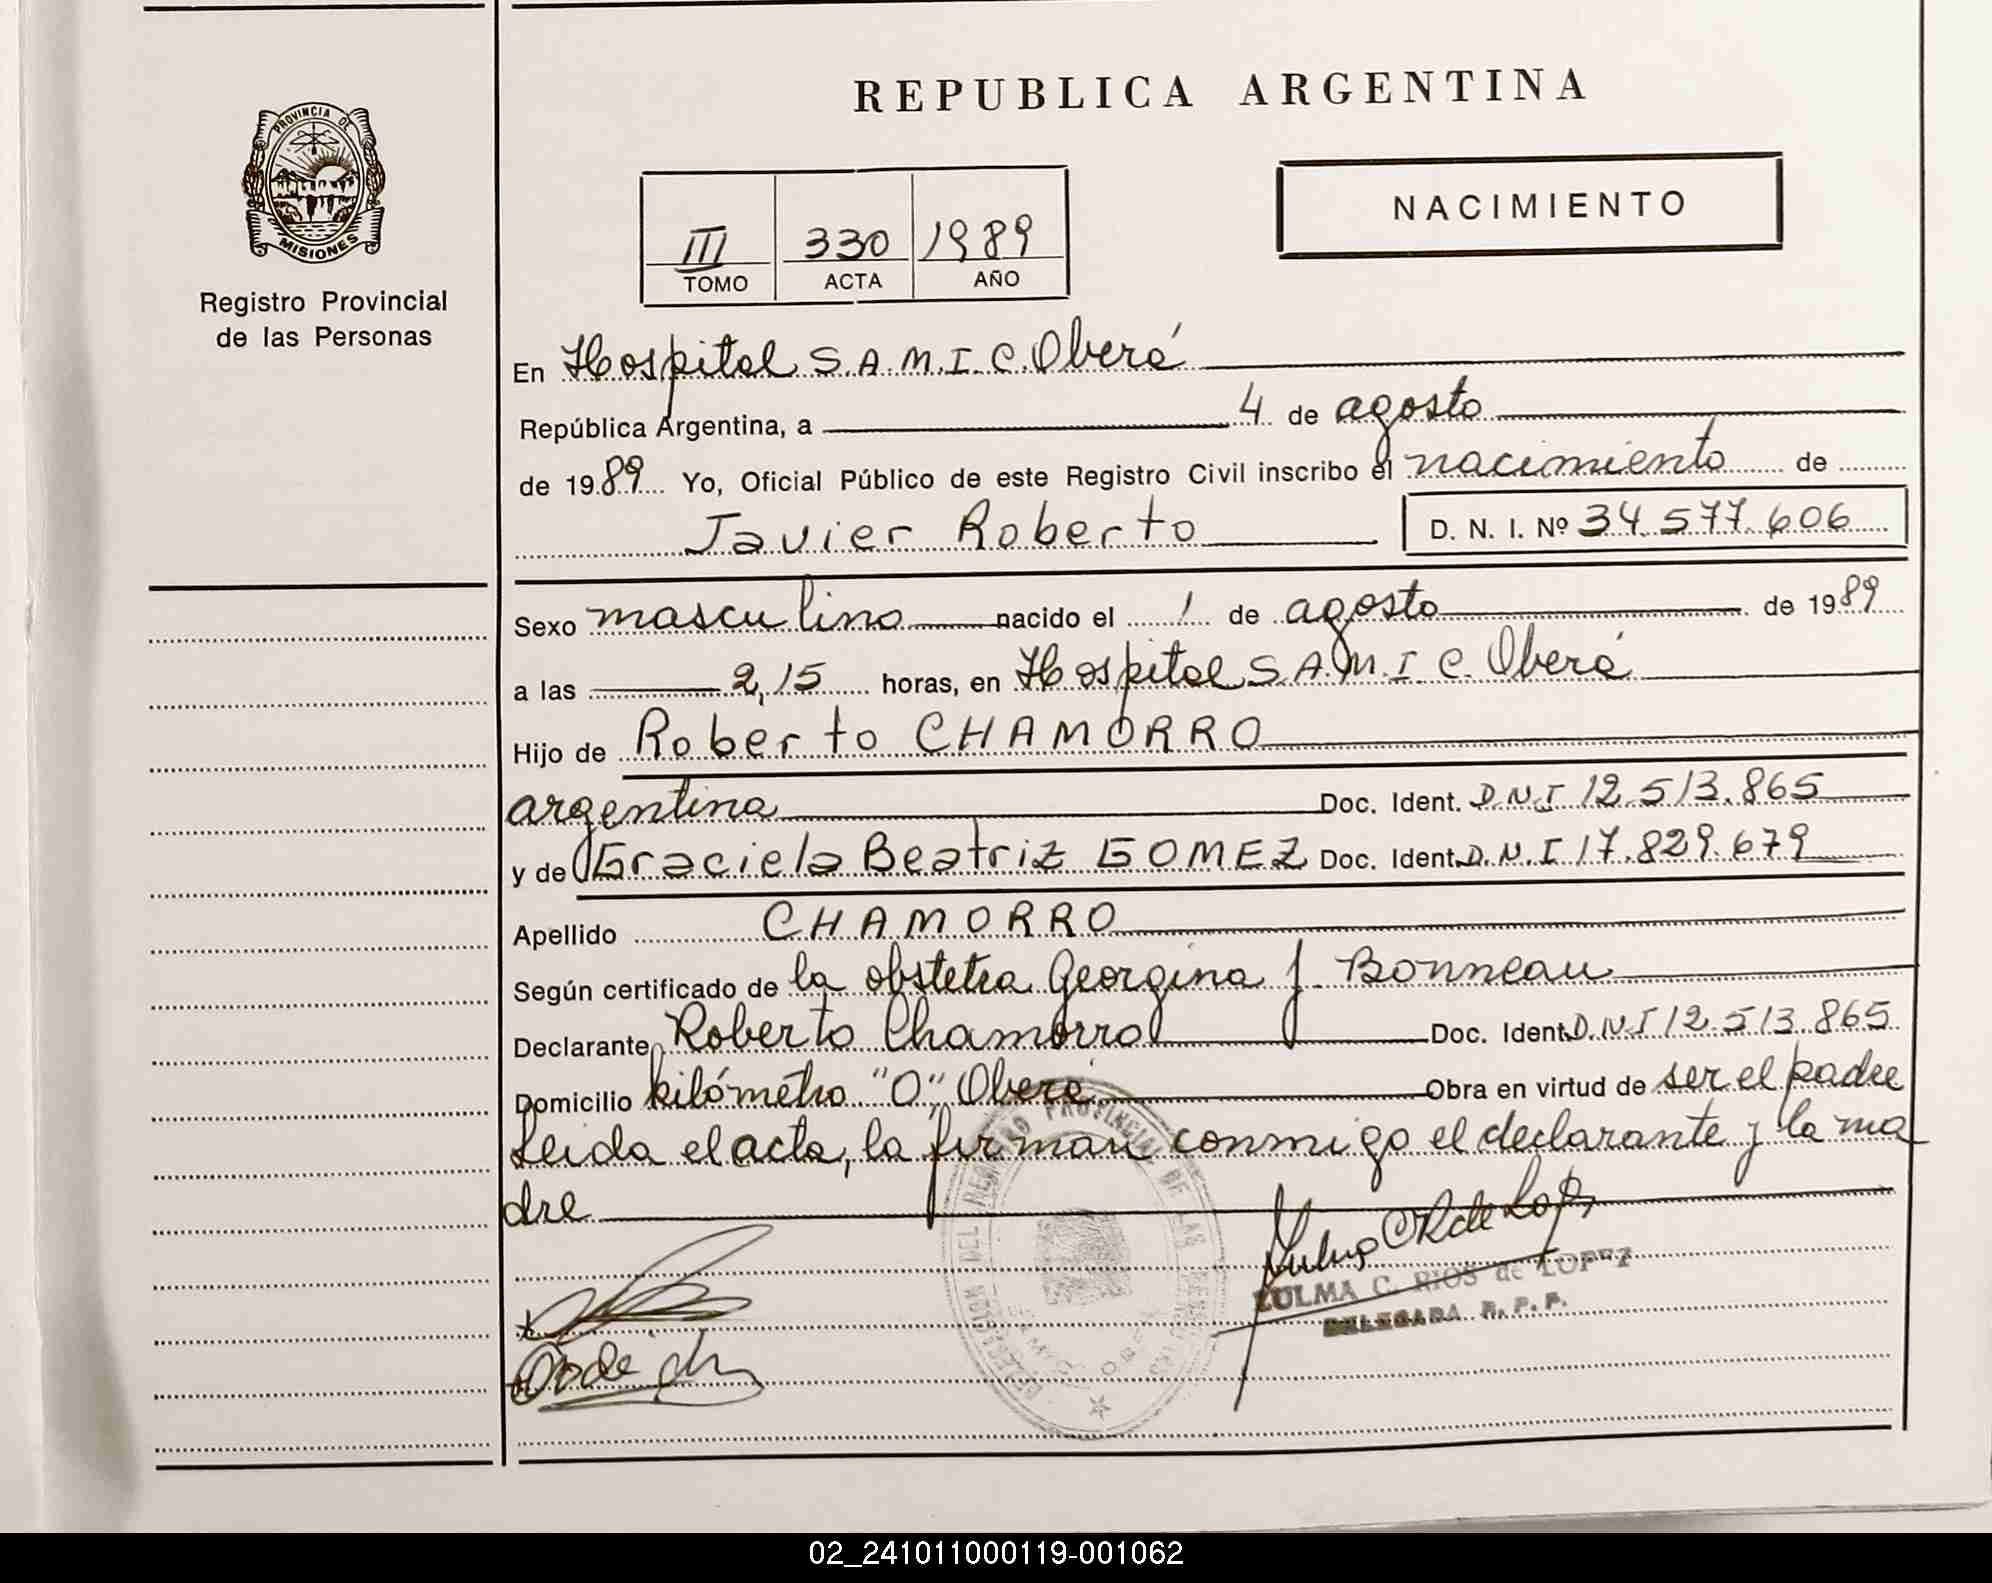 REPUBLICA ARGENTINA
PROVINCIA DE
MISIONES
Registro Provincial
de las Personas
III 330 1989
TOMO ACTA AÑO
NACIMIENTO
En Hospital S.A.M.I.C. Oberá
República Argentina, a 4 de agosto
de 1989 Yo, Oficial Público de este Registro Civil inscribo el nacimiento de
Javier Roberto D. N. I. Nº 34.577.606
Sexo masculino nacido el 1 de agosto de 1989
a las 2,15 horas, en Hospital S.A.M.I.C. Oberá
Hijo de Roberto CHAMORRO
argentina Doc. Ident. D.N.I 12.513.865
y de Graciela Beatriz GOMEZ Doc. Ident. D.N.I 17.829.679
Apellido CHAMORRO
Según certificado de la obstetra Georgina J. Bonneau
Declarante Roberto Chamorro Doc. Ident. D.N.I 12.513.865
Domicilio kilómetro "O", Oberá Obra en virtud de ser el padre
Leida el acta, la firman conmigo el declarante y la ma
dre
DELEGACION DEL REGISTRO PROVINCIAL DE LAS PERSONAS
ZULMA C. RIOS de LOPEZ
DELEGADA R. P. P.
02_241011000119-001062